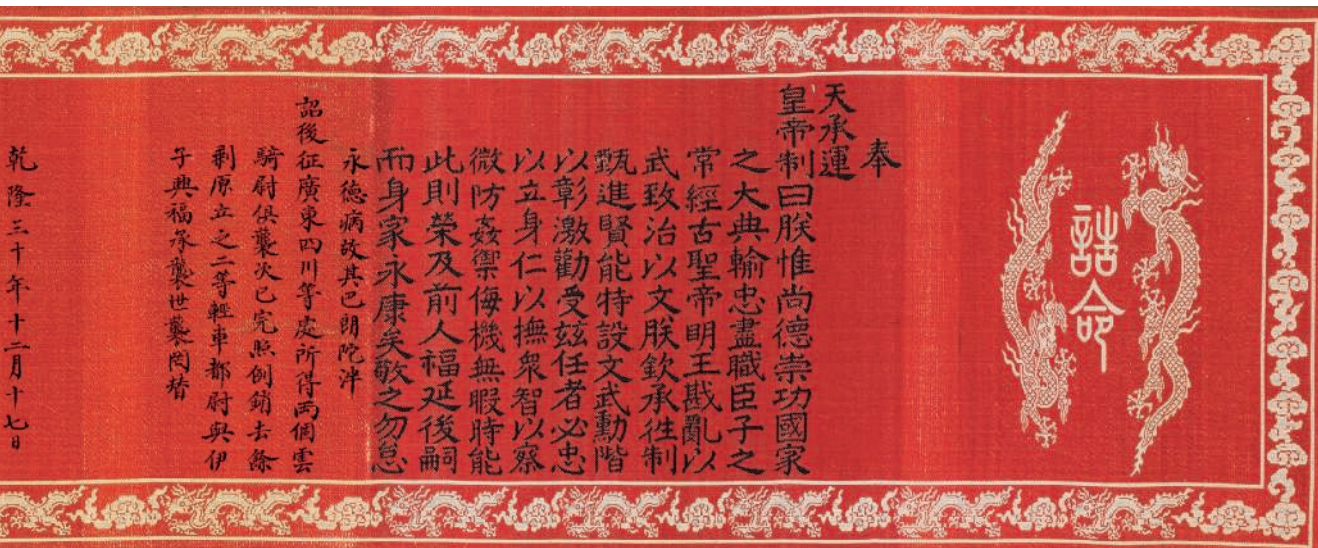 誥命
奉
天承運
皇帝制曰朕惟尚德崇功國家
之大典輸忠盡職臣子之
常經古聖帝明王戡亂以
武致治以文朕欽承往制
甄進賢能特設文武勳階
以彰激勸受茲任者必忠
以立身仁以撫衆智以察
微防姦禦侮機無暇時能
此則榮及前人福延後嗣
而身家永康矣敬之勿怠
永德病故其巴朗陀泮
詔後征廣東四川等處所得兩個雲
騎尉俱襲次已完照例銷去餘
剩原立之二等輕車都尉與伊
子興福承襲世襲罔替
乾隆三十年十二月十七日